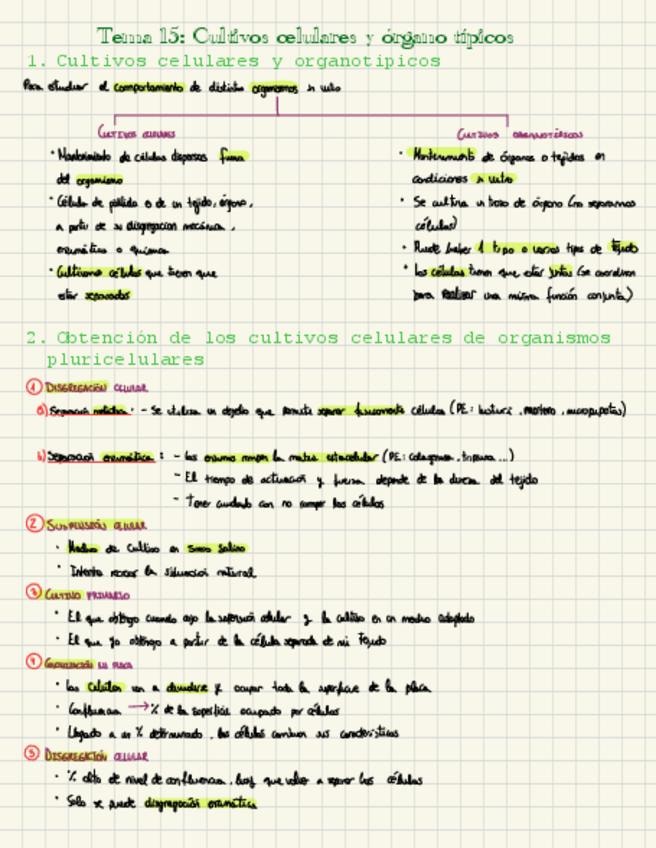 Tema 15: Cultivos celulares y órgano típicos
1. Cultivos celulares y organotipicos
Para estudiar el comportamiento de distintos organismos in vitro
CULTIVOS CELULARES
· Mantenimiento de células dispersas fuera
del organismo
· Célula de pálida o de un tejido, órgano,
a partir de su disgregación mecánica,
enzimática o química
· Cultivamos células que tienen que
estar separadas
CULTIVOS ORGANOTÍPICOS
· Mantenimiento de órganos o tejidos en
condiciones in vitro
· Se cultiva un trozo de órgano (no separamos
células)
· Puede haber 1 tipo o varios tipos de tejido
· Las células tienen que estar juntas (se coordinan
para realizar una misma función conjunta)
2. Obtención de los cultivos celulares de organismos
pluricelulares
① DISGREGACIÓN CELULAR
a) Separación : - Se utiliza un objeto que permite separar físicamente células (PE: bisturí, mortero, micropipetas)
b) Separación enzimática : - las enzimas rompen la matriz extracelular (PE: colagenasa, tripsina...)
- El tiempo de actuación y fuerza depende de la dureza del tejido
- Tener cuidado con no romper las células
② SUSPENSIÓN CELULAR
· Medio de cultivo en suero salino
· Intenta recrear la situación natural
③ CULTIVO PRIMARIO
· El que obtengo cuando cojo la suspensión celular y la cultivo en un medio adaptado
· El que yo obtengo a partir de la célula separada de mi tejido
④ EN PLACA
· Las células van a dividirse y ocupar toda la superficie de la placa
· Confluencia → % de la superficie ocupado por células
· Llegado a un % determinado, las células cambian sus características
⑤ DISGREGACIÓN CELULAR
· % alto de nivel de confluencia, hay que volver a separar las células
· Solo se puede disgregación enzimática